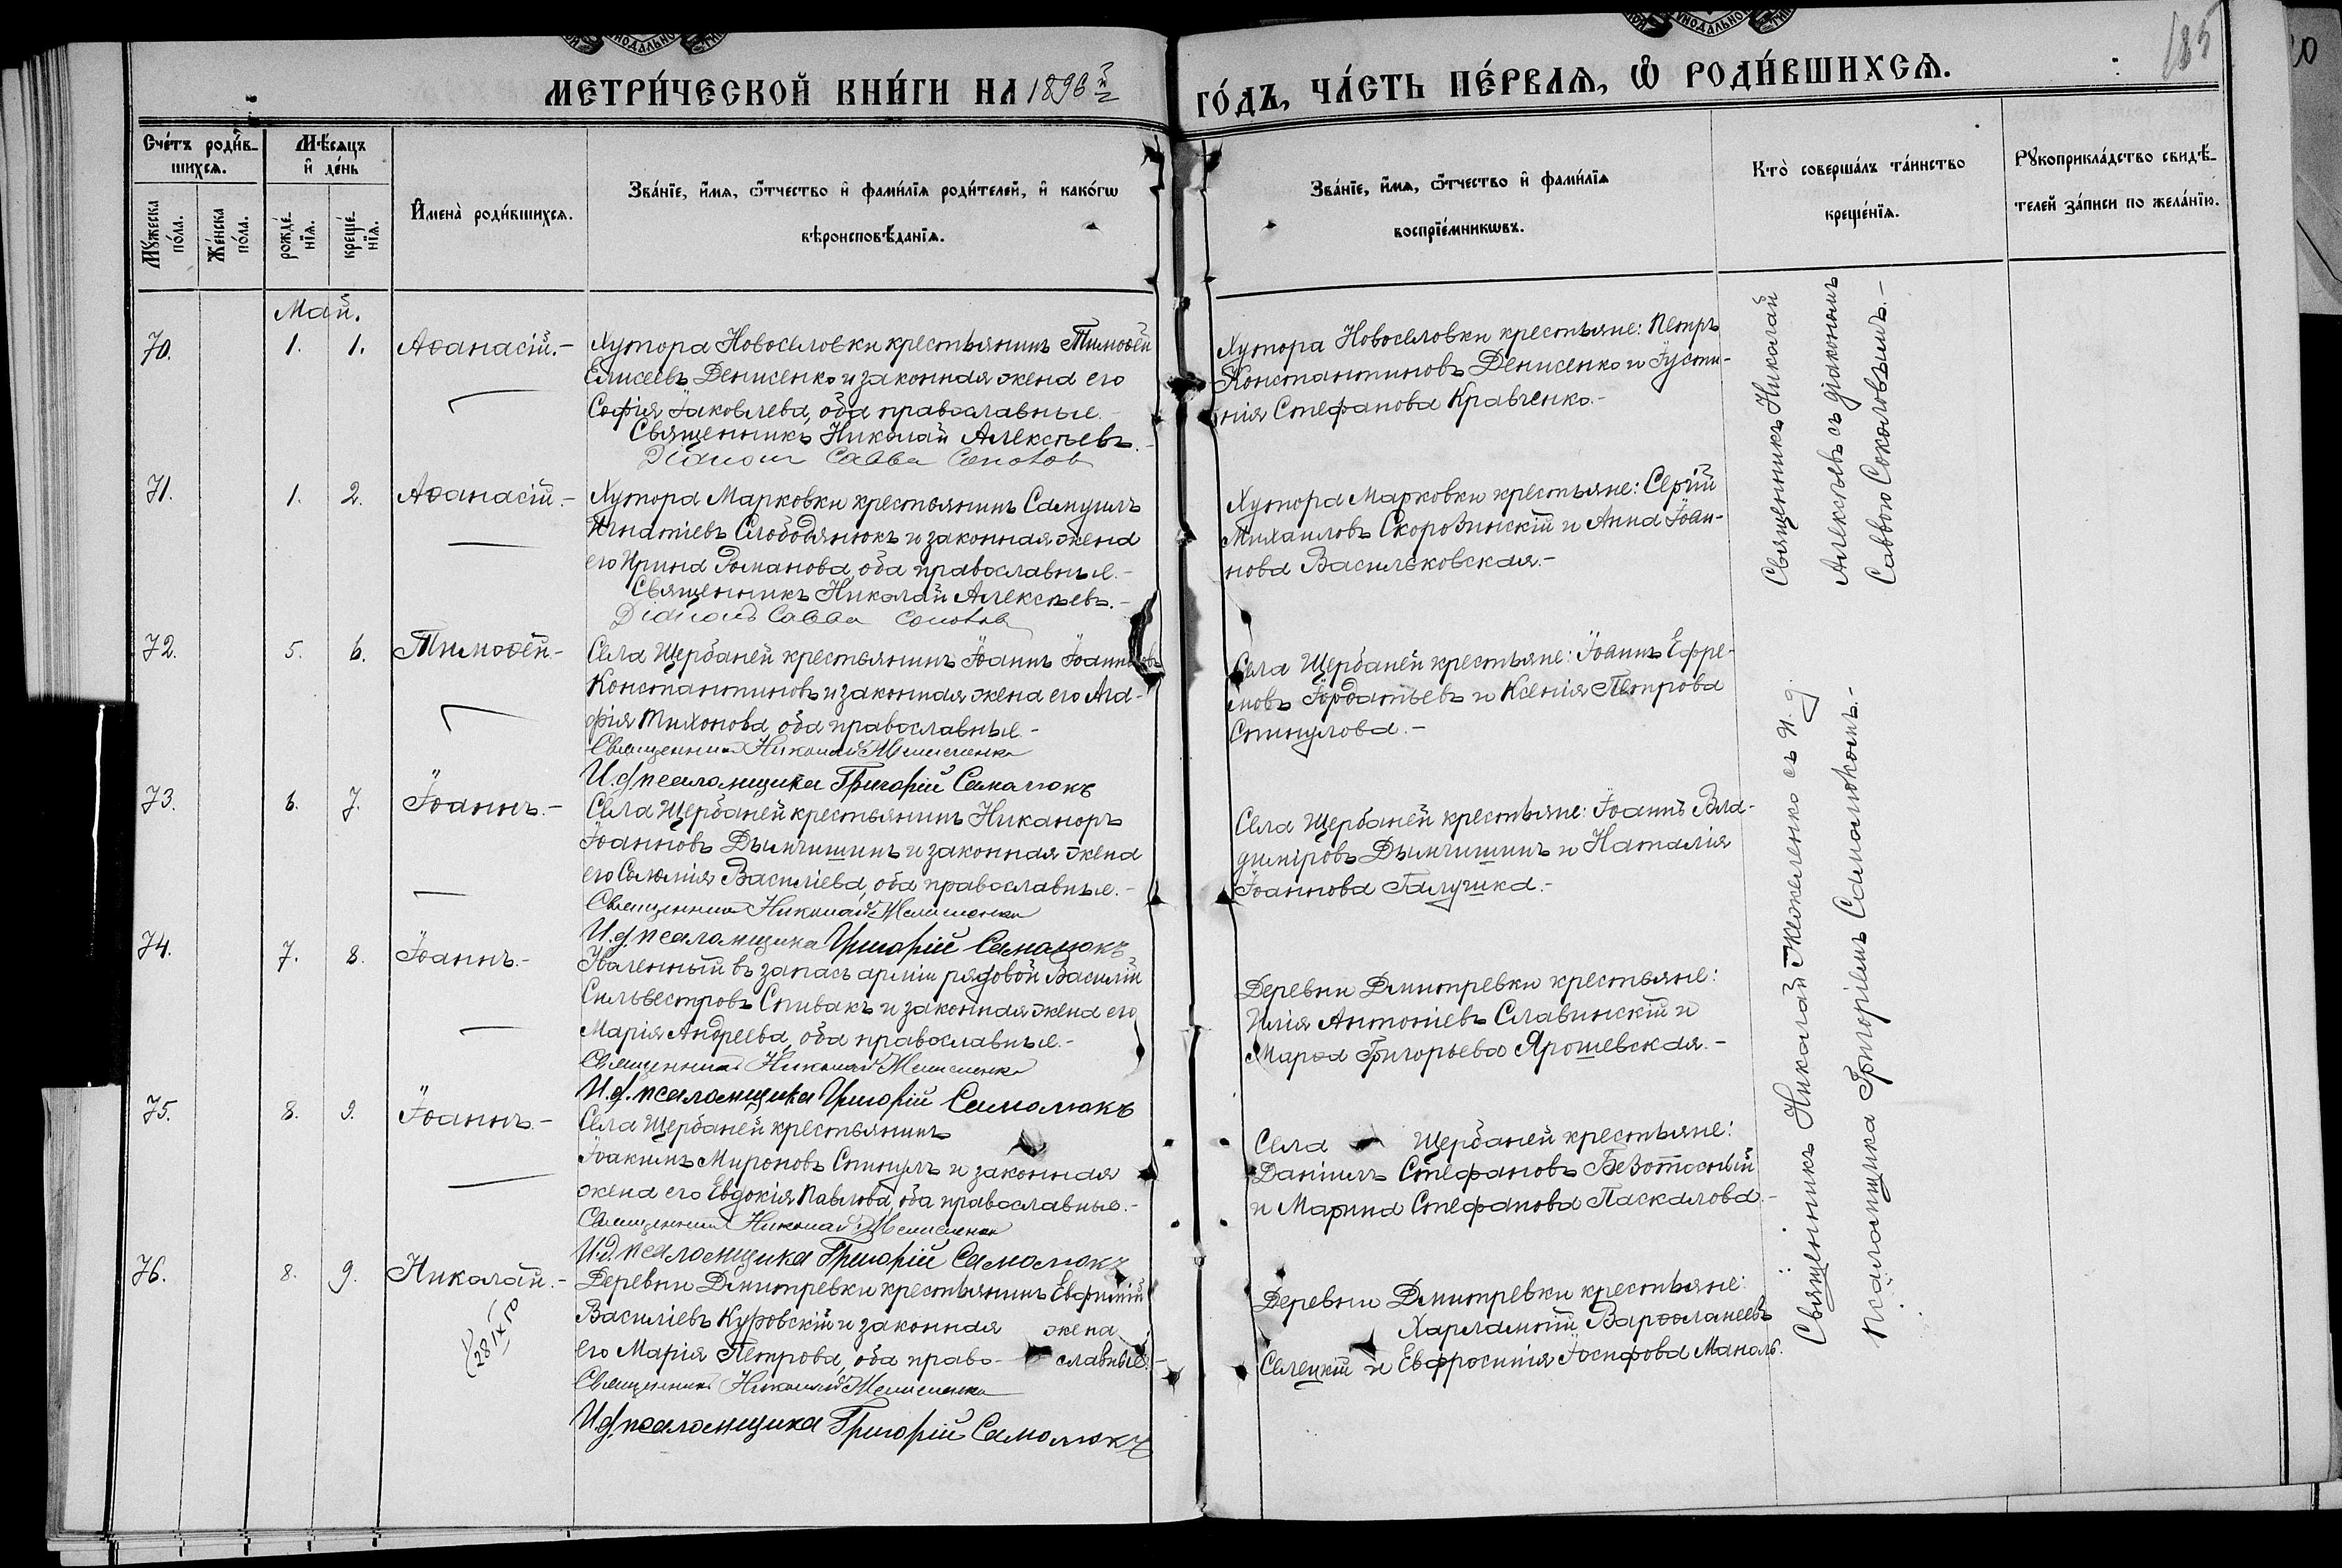 МЕТРИ́ЧЕСКОЙ КНИ́ГИ НА 1896й
ГО́ДЪ, ЧА́СТЬ ПЕ́РВАѦ, Ѡ РОДИ́ВШИХСѦ.
185
Сче́тъ роди́в-
шихсѧ.
Мѣ́сѧцъ
и҆ де́нь
Мꙋ́жеска
по́ла.
Же́нска
по́ла.
рожде́-
нїѧ.
креще́-
нїѧ.
И҆мена̀ роди́вшихсѧ.
Зва́нїе, и҆́мѧ, ѻ҆́тчество и҆ фами́лїѧ роди́телей, и҆ како́гѡ
вѣроисповѣ́данїѧ.
Зва́нїе, и҆́мѧ, ѻ҆́тчество и҆ фами́лїѧ
воспрїе́мникѡвъ.
Кто̀ соверша́лъ та́инство
креще́нїѧ.
Рꙋкоприкла́дство свидѣ́-
телей за́писи по жела́нїю.
Май.
70.
1. 1.
Аѳанасій.-
Хутора Новоселовки крестьянинъ Тимоѳей
Елисеевъ Денисенко и законная жена его
Софія Іаковлева, оба православные.-
Священникъ Николай Алексѣевъ.-
Діаконъ Савва Соколовъ
Хутора Новоселовки крестьяне: Петръ
Константиновъ Денисенко и Іусти-
нія Стефанова Кравченко.-
71.
1. 2.
Аѳанасій.-
Хутора Марковки крестьянинъ Самуилъ
Игнатіевъ Слободянюкъ и законная жена
его Ирина Романова, оба православные.-
Священникъ Николай Алексѣевъ.-
Діаконъ Савва Соколовъ
Хутора Марковки крестьяне: Сергій
Михаиловъ Скоровинскій и Анна Іоан-
нова Васильковская.-
Священникъ Николай
Алексѣевъ съ діакономъ
Саввою Соколовымъ.-
72.
5. 6.
Тимоѳей.-
Села Щербаней крестьянинъ Іоаннъ Іоанновъ
Константиновъ и законная жена его Ага-
фія Тихонова, оба православные.-
Священникъ Николай
И.д. псаломщика Григорій Самолюкъ
Села Щербаней крестьяне: Іоаннъ Ефре-
мовъ и Ксенія Петрова
Стингулова.-
73.
6. 7.
Іоаннъ.-
Села Щербаней крестьянинъ Никаноръ
Іоанновъ Дымчишинъ и законная жена
его Саломія Василіева, оба православные.-
Священникъ Николай
И.д. псаломщика Григорій Самолюкъ
Села Щербаней крестьяне: Іоаннъ Вла-
диміровъ Дымчишинъ и Наталія
Іоаннова Галушка.-
74.
7. 8.
Іоаннъ.-
Уволенный въ запасъ арміи рядовой Василій
Сильвестровъ Спивакъ и законная жена его
Марія Андреева, оба православные.-
Священникъ Николай
И.д. псаломщика Григорій Самолюкъ
Деревни Дмитревки крестьяне:
Илія Антоніевъ Славинскій и
Марѳа Григорьева Ярошевская.-
75.
8. 9.
Іоаннъ.-
Села Щербаней крестьянинъ
Іоакимъ Мироновъ Стингулъ и законная
жена его Евдокія Павлова, оба православные.-
Священникъ Николай
И.д. псаломщика Григорій Самолюкъ
Села Щербаней крестьяне:
Даніилъ Стефановъ Безотосный
и Марина Стефанова Паскалова.-
76.
8. 9.
Николай.-
Деревни Дмитревки крестьянинъ Евфимій
Василіевъ Куровскій и законная жена
его Марія Петрова, оба право- славные.-
Священникъ Николай
И.д. псаломщика Григорій Самолюкъ
Деревни Дмитревки крестьяне:
Харлампій Варѳоламеевъ
Селецкій и Евфросинія Іосифова Маноль.
Священникъ Николай съ и. д.
псаломщика Григоріемъ Самолюкомъ.-